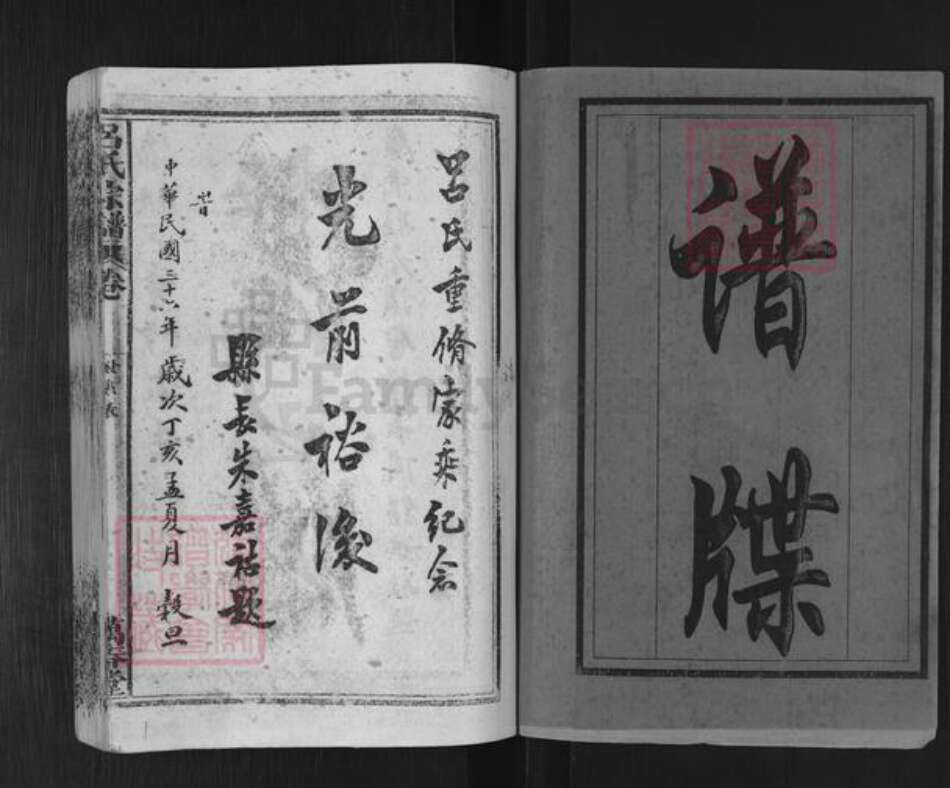 譜牒
呂氏重脩家乘紀念
光前裕後
縣長朱嘉祜題
時
中華民國三十六年歲次丁亥孟夏月 穀旦
呂氏宗譜 卷
萬春堂